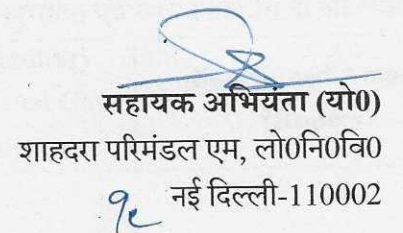 सहायक अभियंता (यो0)
शाहदरा परिमंडल एम, लो0नि0वि0
नई दिल्ली-110002